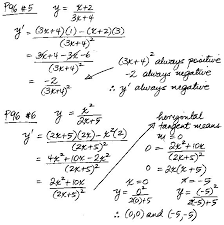 P96 #5 y = x+2 / 3x+4
y' = (3x+4)(1) - (x+2)(3) / (3x+4)²
= 3x+4-3x-6 / (3x+4)²
= -2 / (3x+4)²
(3x+4)² always positive
-2 always negative
∴ y' always negative
P96 #6 y = x² / 2x+5
y' = (2x+5)(2x) - x²(2) / (2x+5)²
= 4x²+10x-2x² / (2x+5)²
= 2x²+10x / (2x+5)²
horizontal
tangent means
m = 0
0 = 2x²+10x / (2x+5)²
0 = 2x(x+5)
x = 0 x = -5
y = 0² / 2(0)+5 y = (-5)² / 2(-5)+5
∴ (0,0) and (-5,-5)